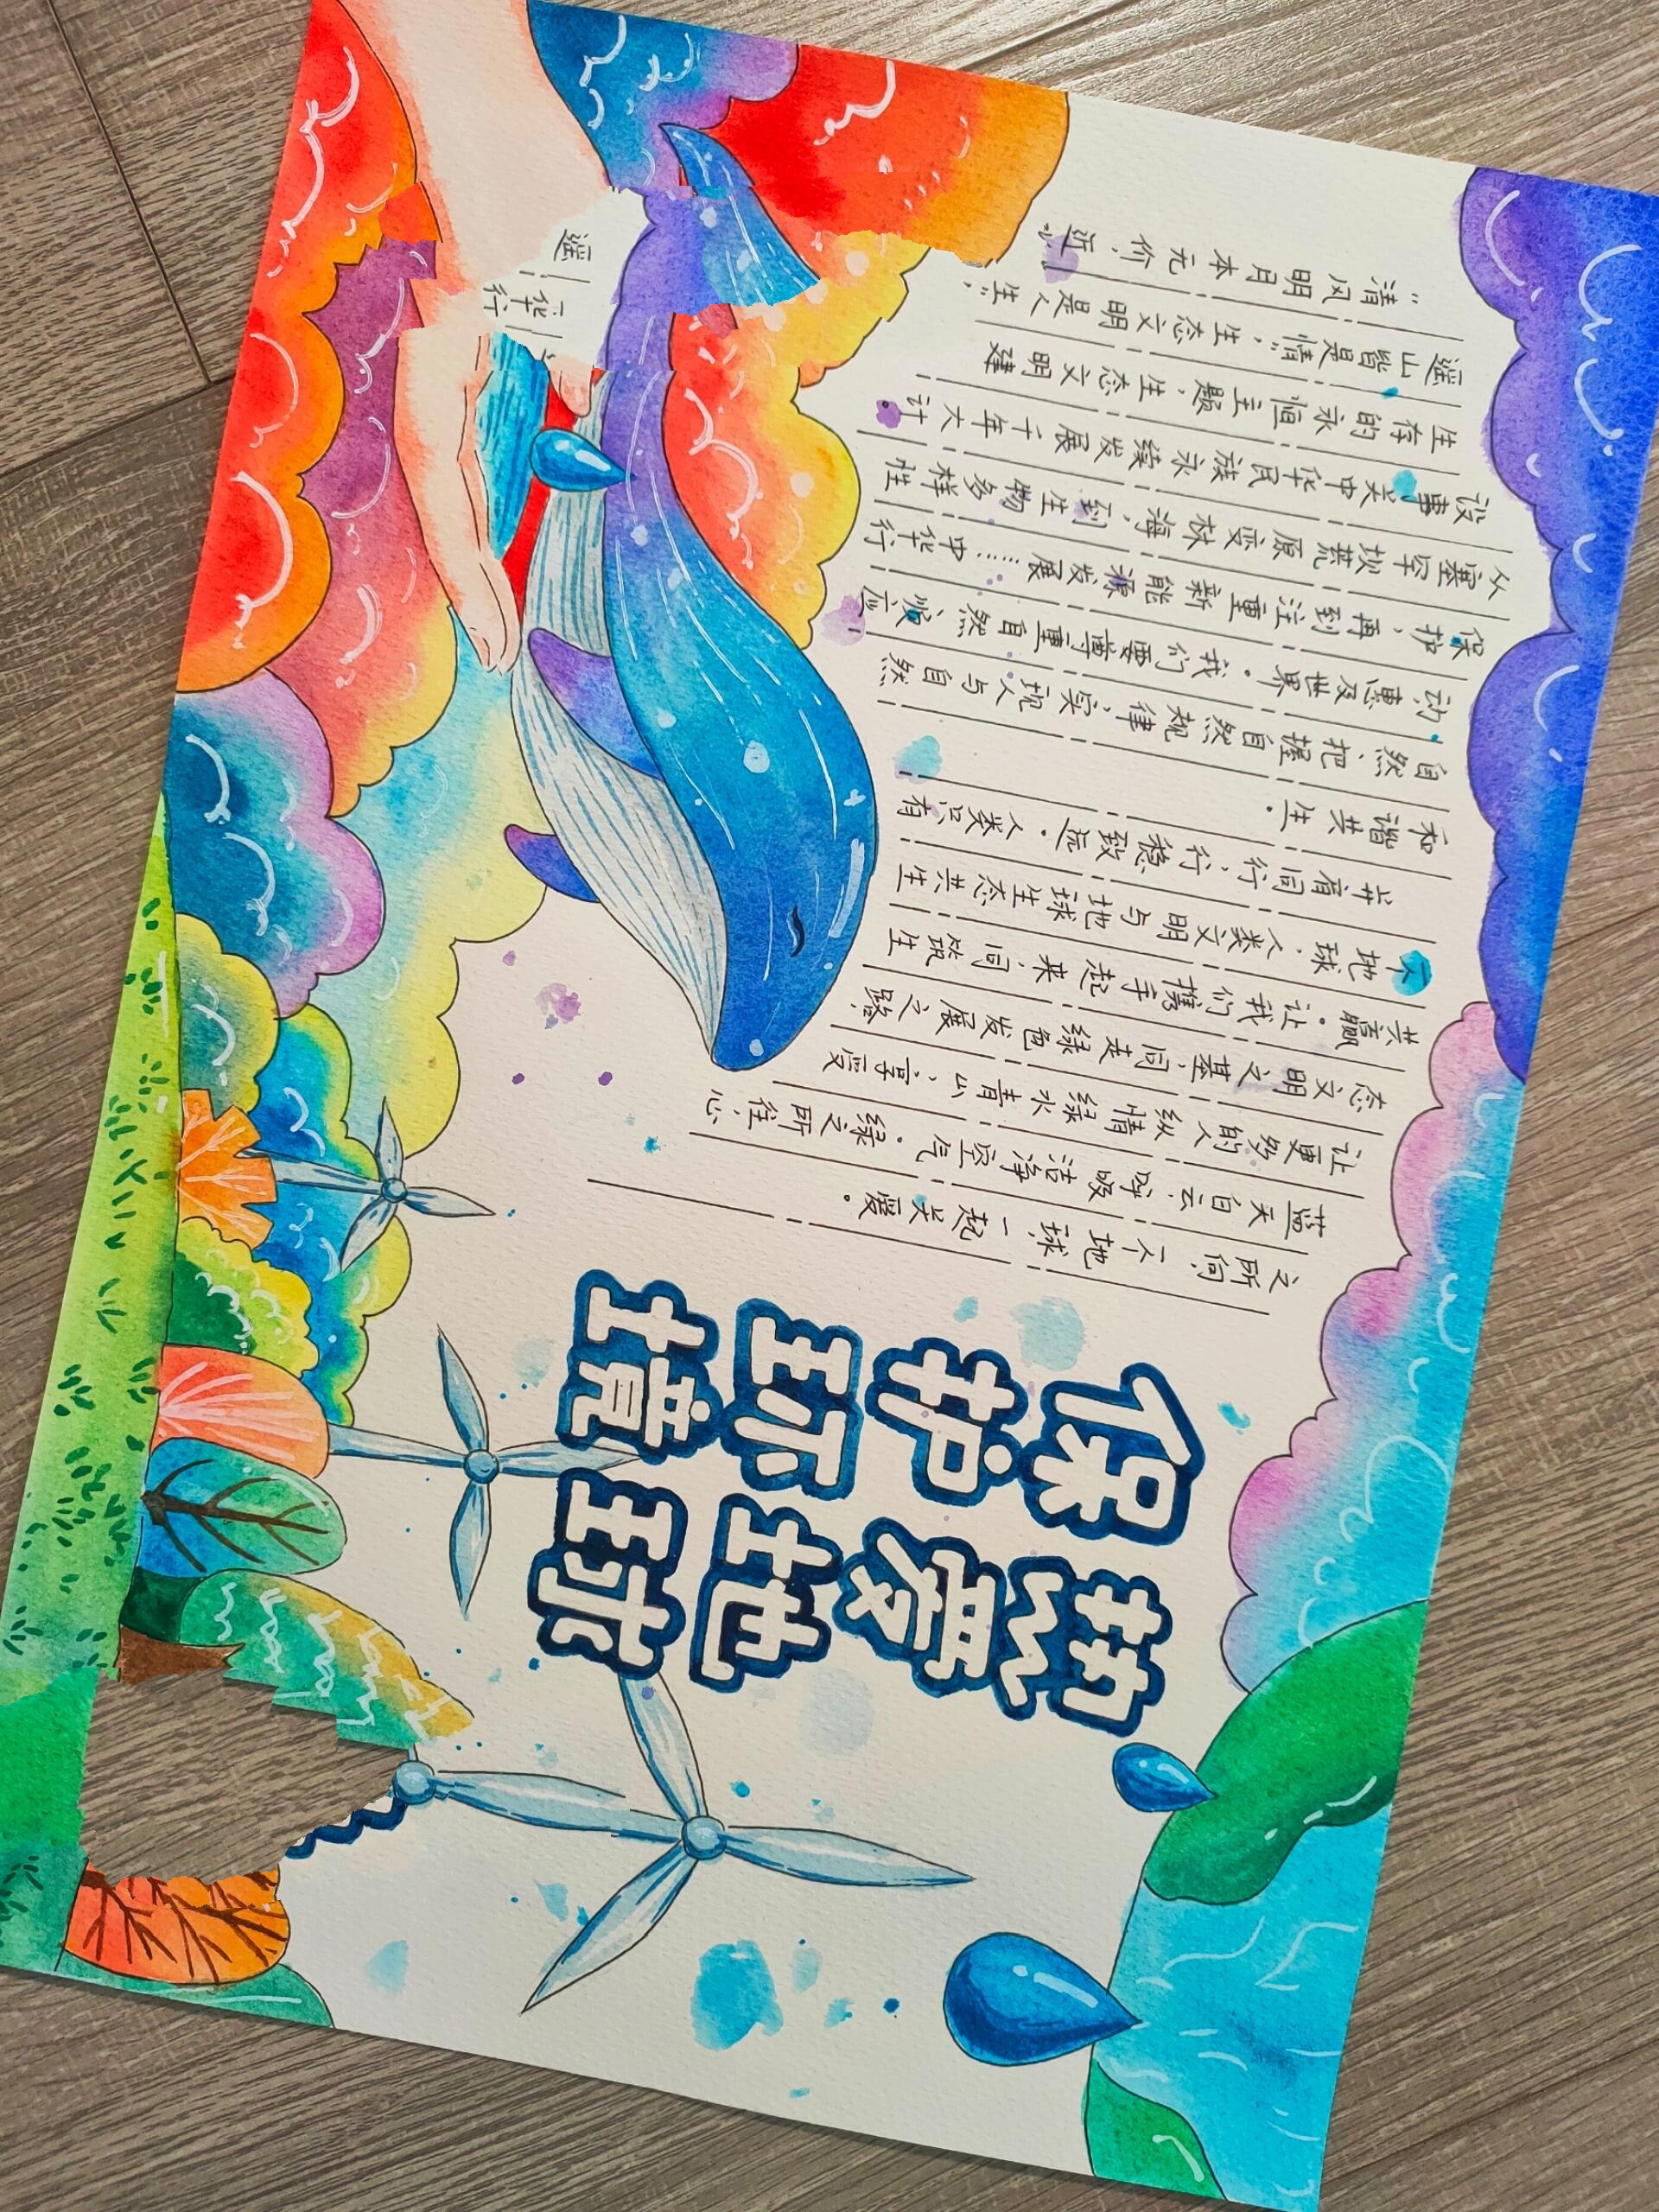 保护环境
热爱地球
“清风明月本无价，近
遥山皆是情”，生态文明是人生
生存的永恒主题，生态文明建
设事关中华民族永续发展千年大计
从塞罕坝荒原变林海，到生物多样性
保护，再到注重新能源发展……中华行
动惠及世界。我们要尊重自然、顺应
自然、把握自然规律，实现人与自然
和谐共生。
并肩同行，行稳致远。人类只有
个地球，人类文明与地球生态共生
共赢。让我们携手起来，同筑生
态文明之基，同走绿色发展之路！
让更多的人纵情绿水青山、享受
蓝天白云、呼吸洁净空气。绿之所往，心
之所向，一个地球，一起关爱。
遥
华行